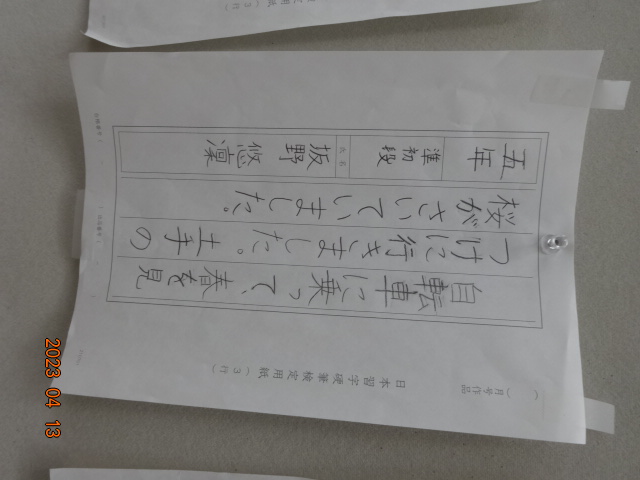 定用紙（3行）
（　）月号作品
日本習字硬筆検定用紙（3行）
自転車に乗って、春を見
つけに行きました。土手の
桜がさいていました。
五年 準初段 氏名 坂野 悠凜
2023 04 13